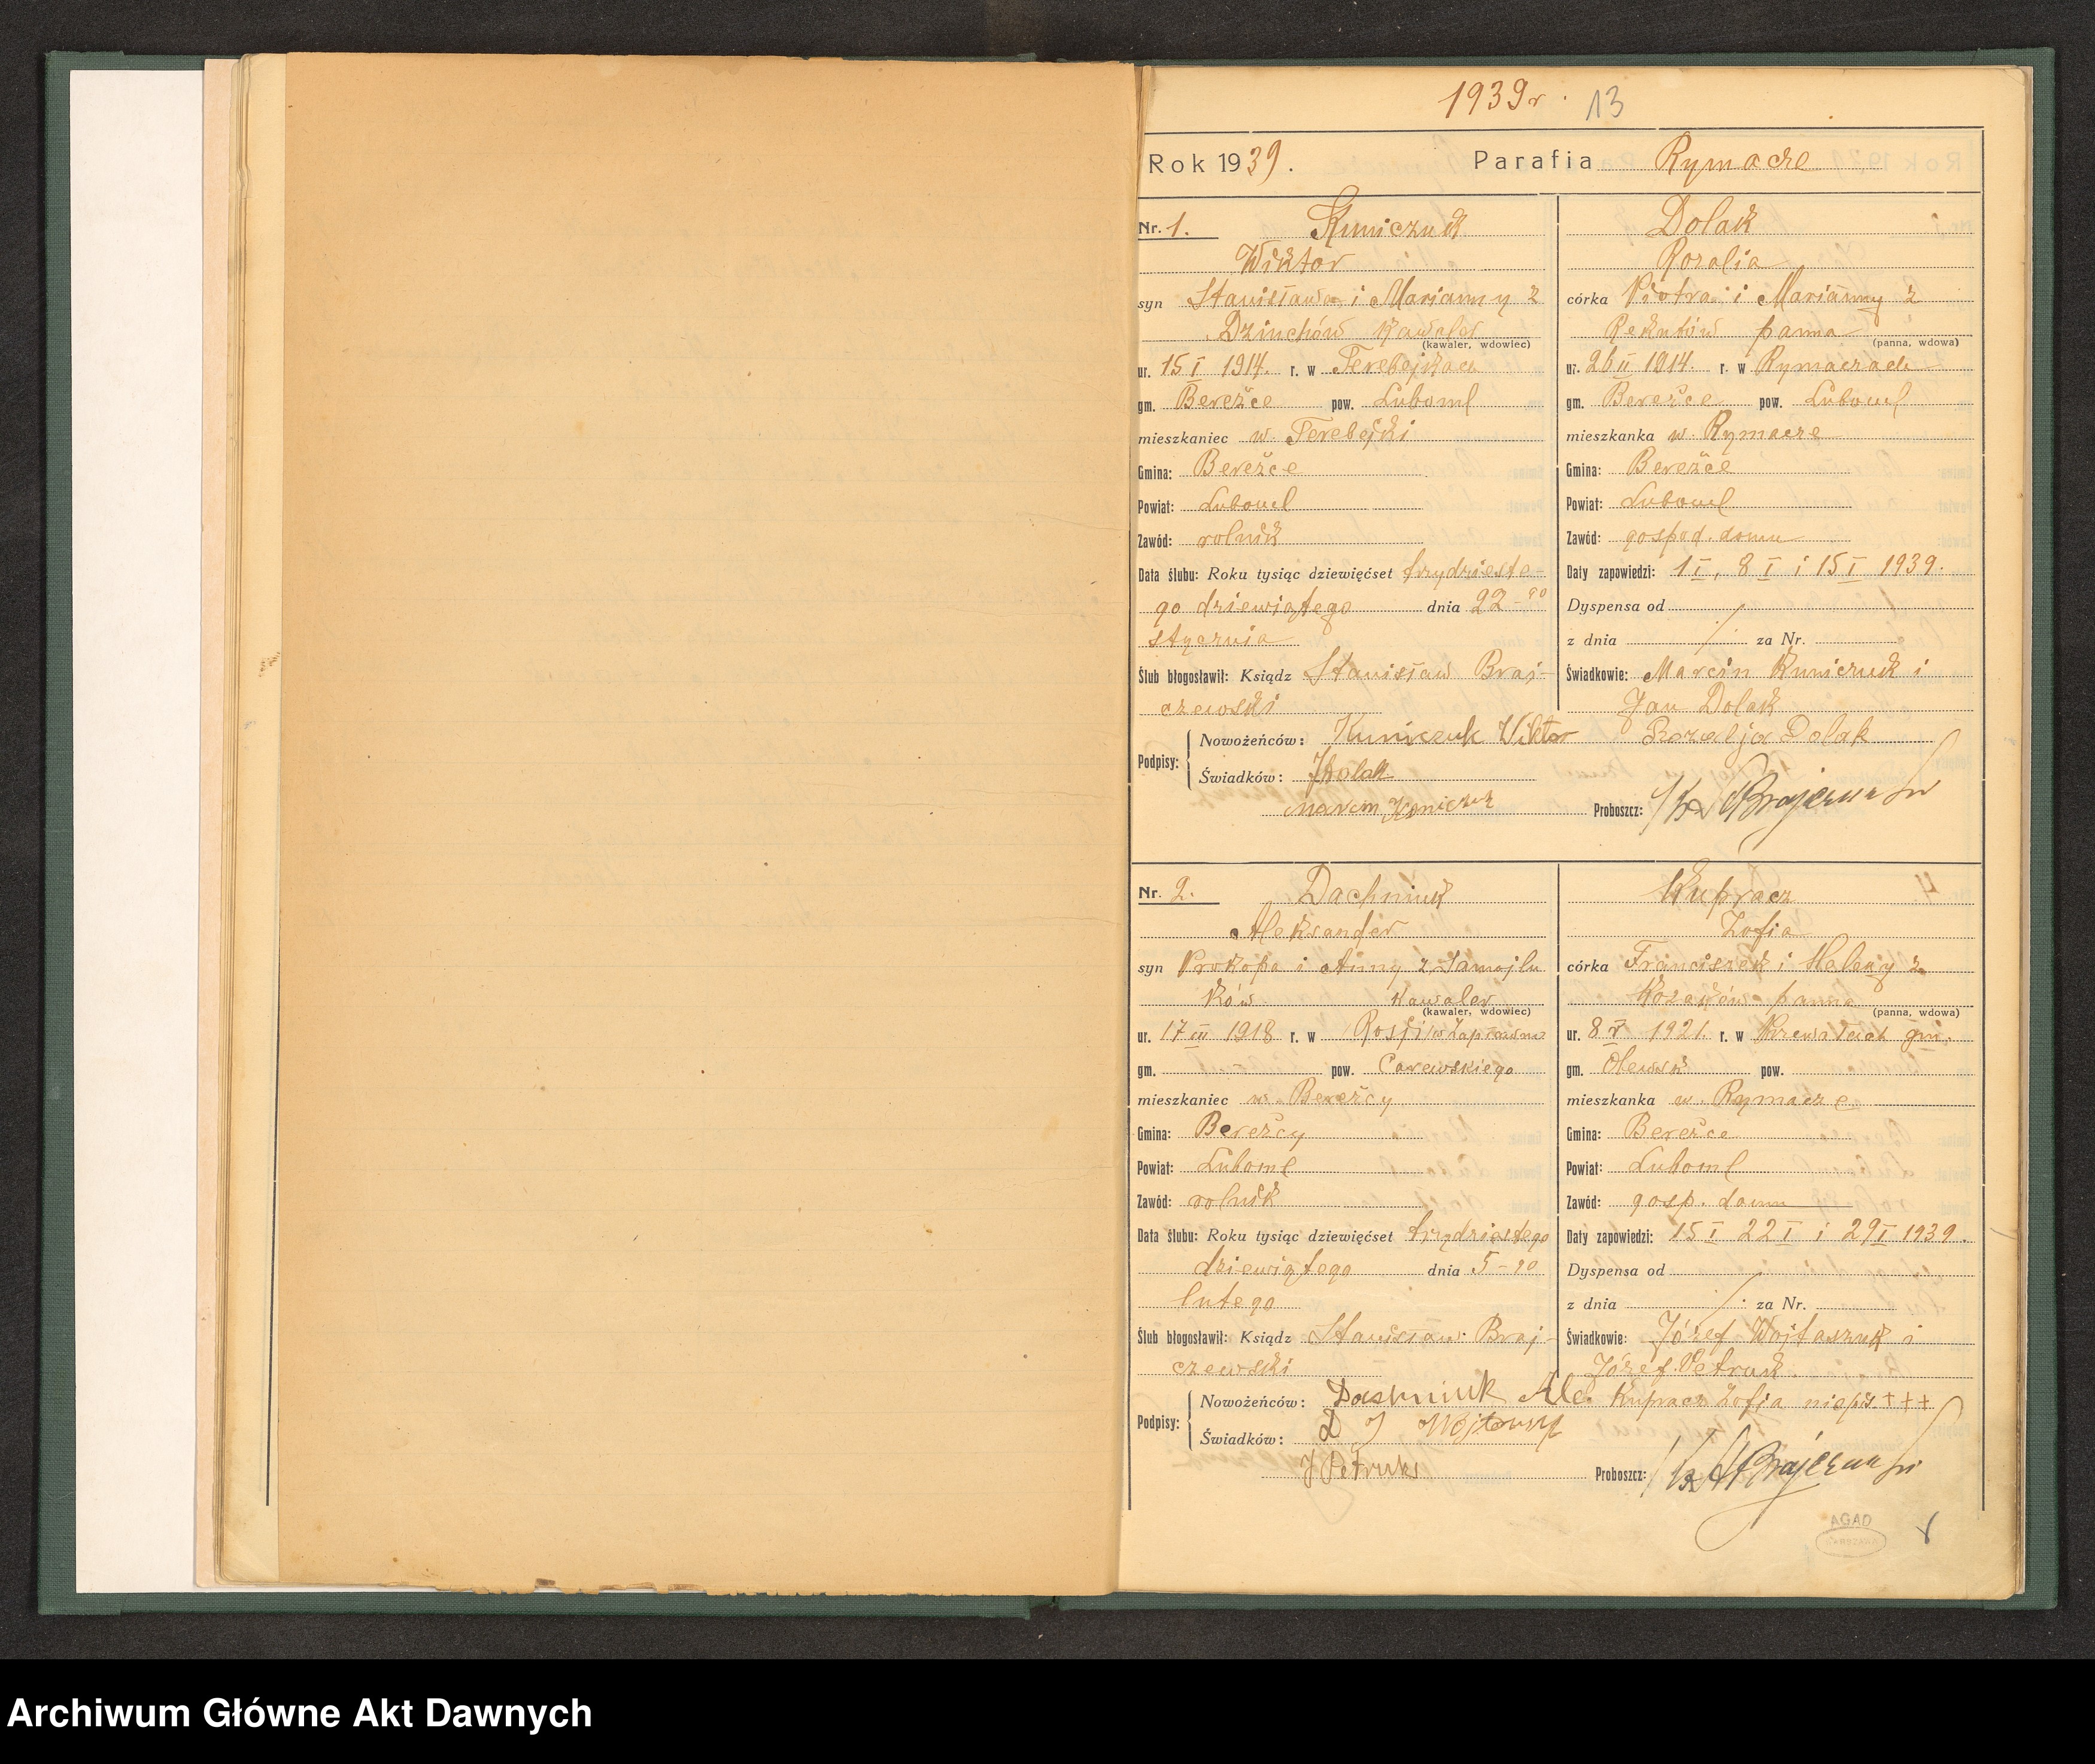 1939r. 13
Rok 1939. Parafia Rymacze
Nr. 1. Kuniczuk
Wiktor
syn Stanisława i Marianny z
Dzinchów kawaler
(kawaler, wdowiec)
ur. 15 I 1914. r. w Terebejkach
gm. Bereżce pow. Luboml
mieszkaniec w Terebejki
Gmina: Bereżce
Powiat: Luboml
Zawód: rolnik
Data ślubu: Roku tysiąc dziewięćset trzydzieste-
go dziewiątego dnia 22-go
stycznia
Ślub błogosławił: Ksiądz Stanisław Braj-
czewski
Dolak
Rozalia
córka Piotra i Marianny z
Rekutów panna
(panna, wdowa)
ur. 26 II 1914. r. w Rymaczach
gm. Bereżce pow. Luboml
mieszkanka w Rymacze
Gmina: Bereżce
Powiat: Luboml
Zawód: gospod. domu
Daty zapowiedzi: 1 I, 8 I i 15 I 1939.
Dyspensa od
z dnia /. za Nr.
Świadkowie: Marcin Kuniczuk i
Jan Dolak
Podpisy: Nowożeńców: Kuniczuk Wiktor Rozalja Dolak
Świadków: JDolak
Marcin Koniczuk
Proboszcz: Ks St Brajczewski
Nr. 2. Dachniuk
Aleksander
syn Prokopa i Anny z Samojlu
ków kawaler
(kawaler, wdowiec)
ur. 17 III 1918 r. w Rosji w
gm. pow. Carewskiego
mieszkaniec w Bereżcy
Gmina: Bereżcy
Powiat: Luboml
Zawód: rolnik
Data ślubu: Roku tysiąc dziewięćset trzydziestego
dziewiątego dnia 5-go
lutego
Ślub błogosławił: Ksiądz Stanisław Braj-
czewski
Kupracz
Zofia
córka Franciszek i Heleny z
Kozaków panna
(panna, wdowa)
ur. 8 V 1921. r. w gm.
gm. Olewsk pow.
mieszkanka w Rymacze
Gmina: Bereżce
Powiat: Luboml
Zawód: gosp. domu
Daty zapowiedzi: 15 I 22 I i 29 I 1939.
Dyspensa od
z dnia /. za Nr.
Świadkowie: Józef Wojtaszuk i
Józef Petruk.
Podpisy: Nowożeńców: Dasmiuk Ale. Kupracz Zofja niepiś. +++
Świadków: J
J Petruk
Proboszcz: Ks St Brajczewski
AGAD
WARSZAWA
Archiwum Główne Akt Dawnych